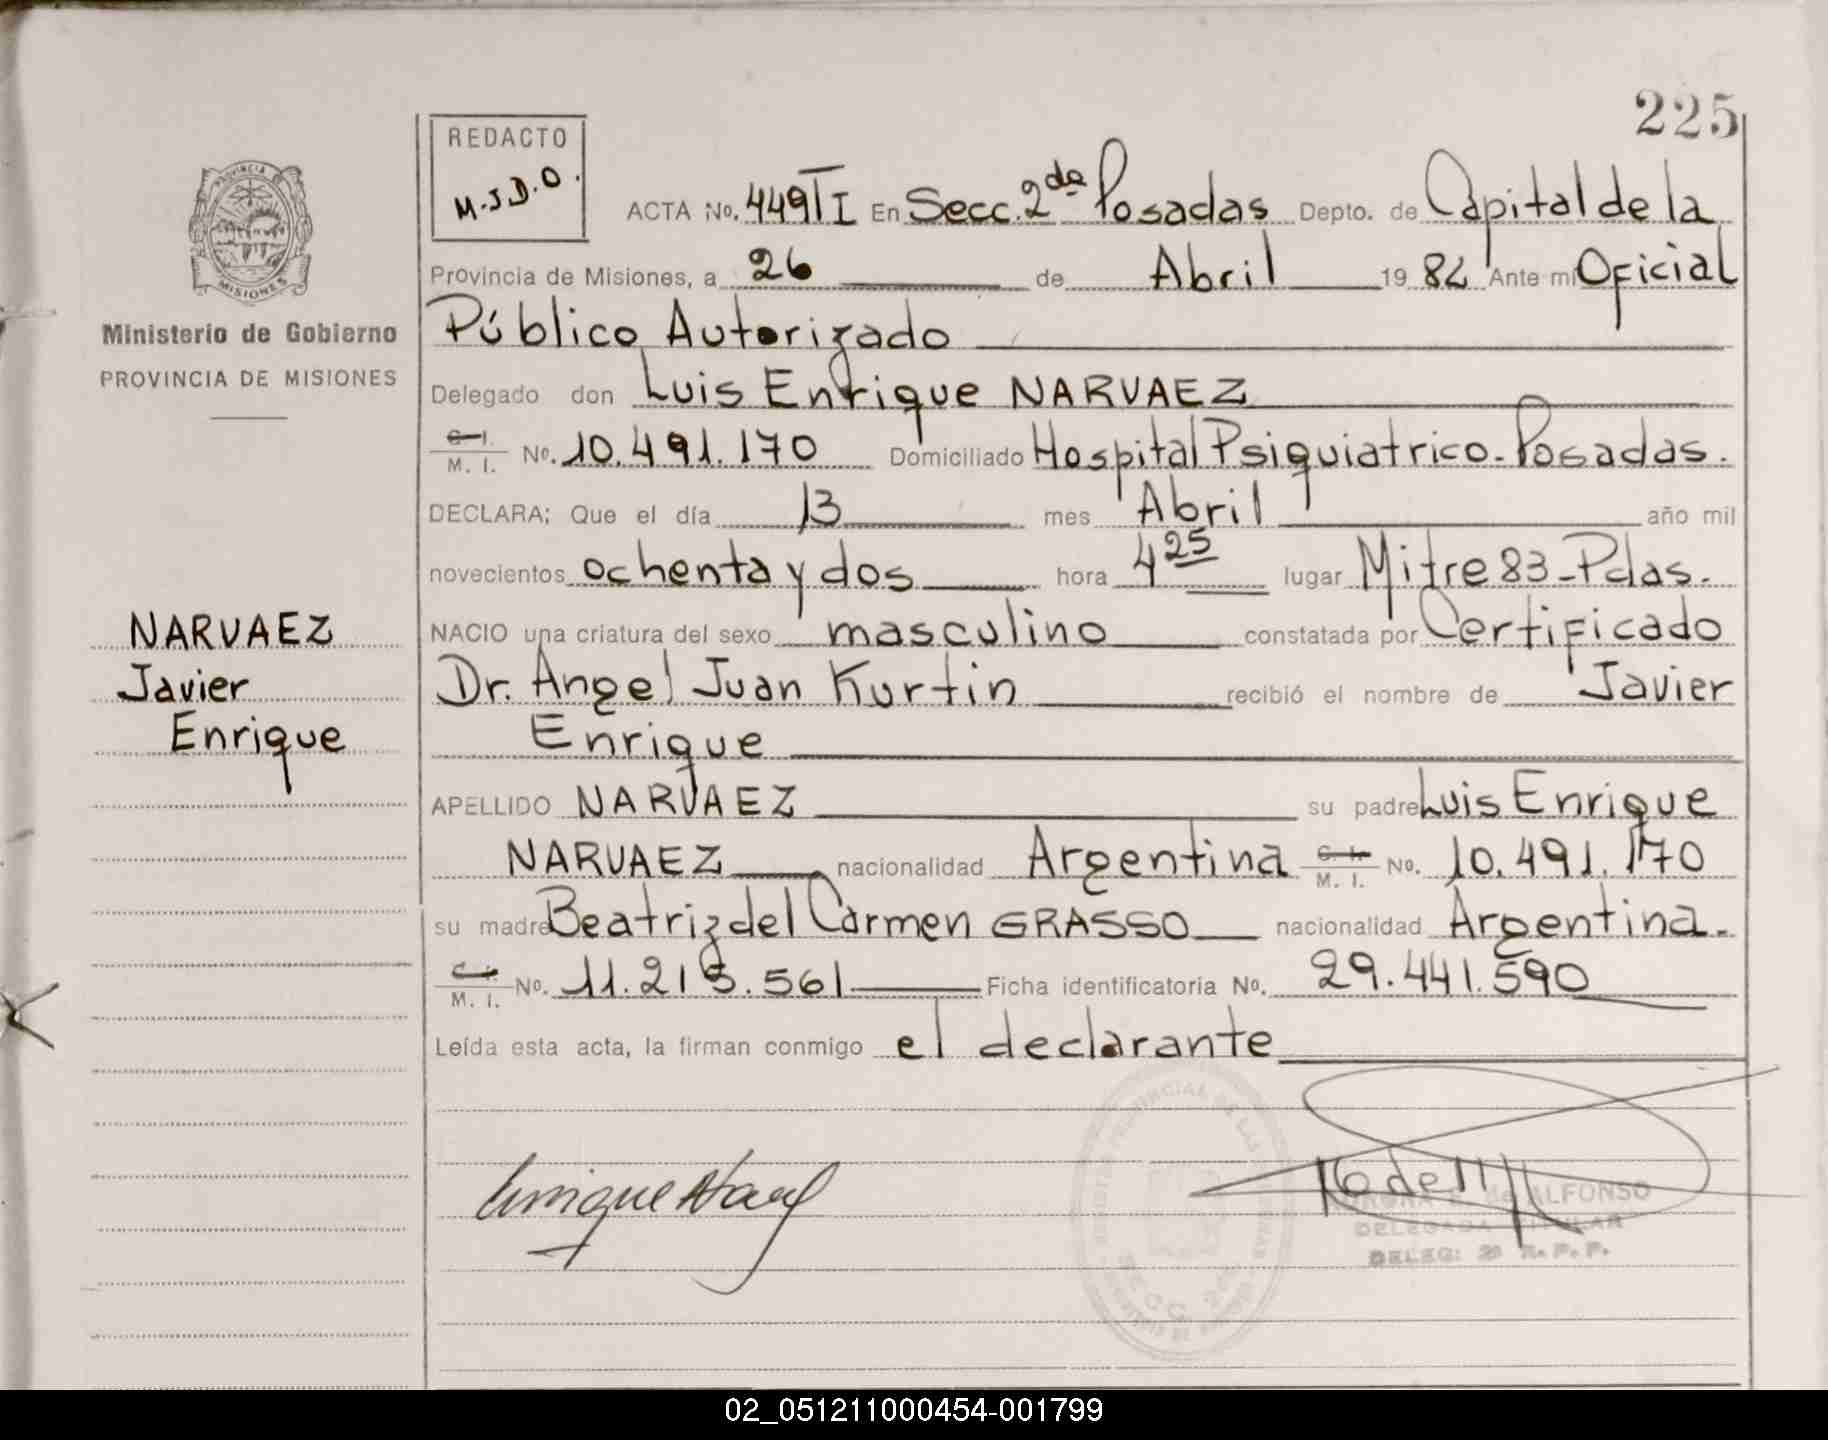 225
REDACTO
M.J.D.O.
ACTA No. 449 TI En Secc. 2da Posadas Depto. de Capital de la
PROVINCIA DE
MISIONES
Provincia de Misiones, a 26 de Abril 1982 Ante mi Oficial
Ministerio de Gobierno
PROVINCIA DE MISIONES
Público Autorizado
Delegado don Luis Enrique NARVAEZ
C. I.
M. I. No. 10.491.170 Domiciliado Hospital Psiquiatrico - Posadas.
DECLARA: Que el día 13 mes Abril año mil
novecientos ochenta y dos hora 4 25 lugar Mitre 83 - Pdas.
NARVAEZ
Javier
Enrique
NACIO una criatura del sexo masculino constatada por Certificado
Dr. Angel Juan Kurtin recibió el nombre de Javier
Enrique
APELLIDO NARVAEZ su padre Luis Enrique
NARVAEZ nacionalidad Argentina C. I. M. I. No. 10.491.170
su madre Beatriz del Carmen GRASSO nacionalidad Argentina.
M. I. No. 11.215.561 Ficha identificatoria No. 29.441.590
Leída esta acta, la firman conmigo el declarante
de ALFONSO
DELEGADA TITULAR
02_051211000454-001799